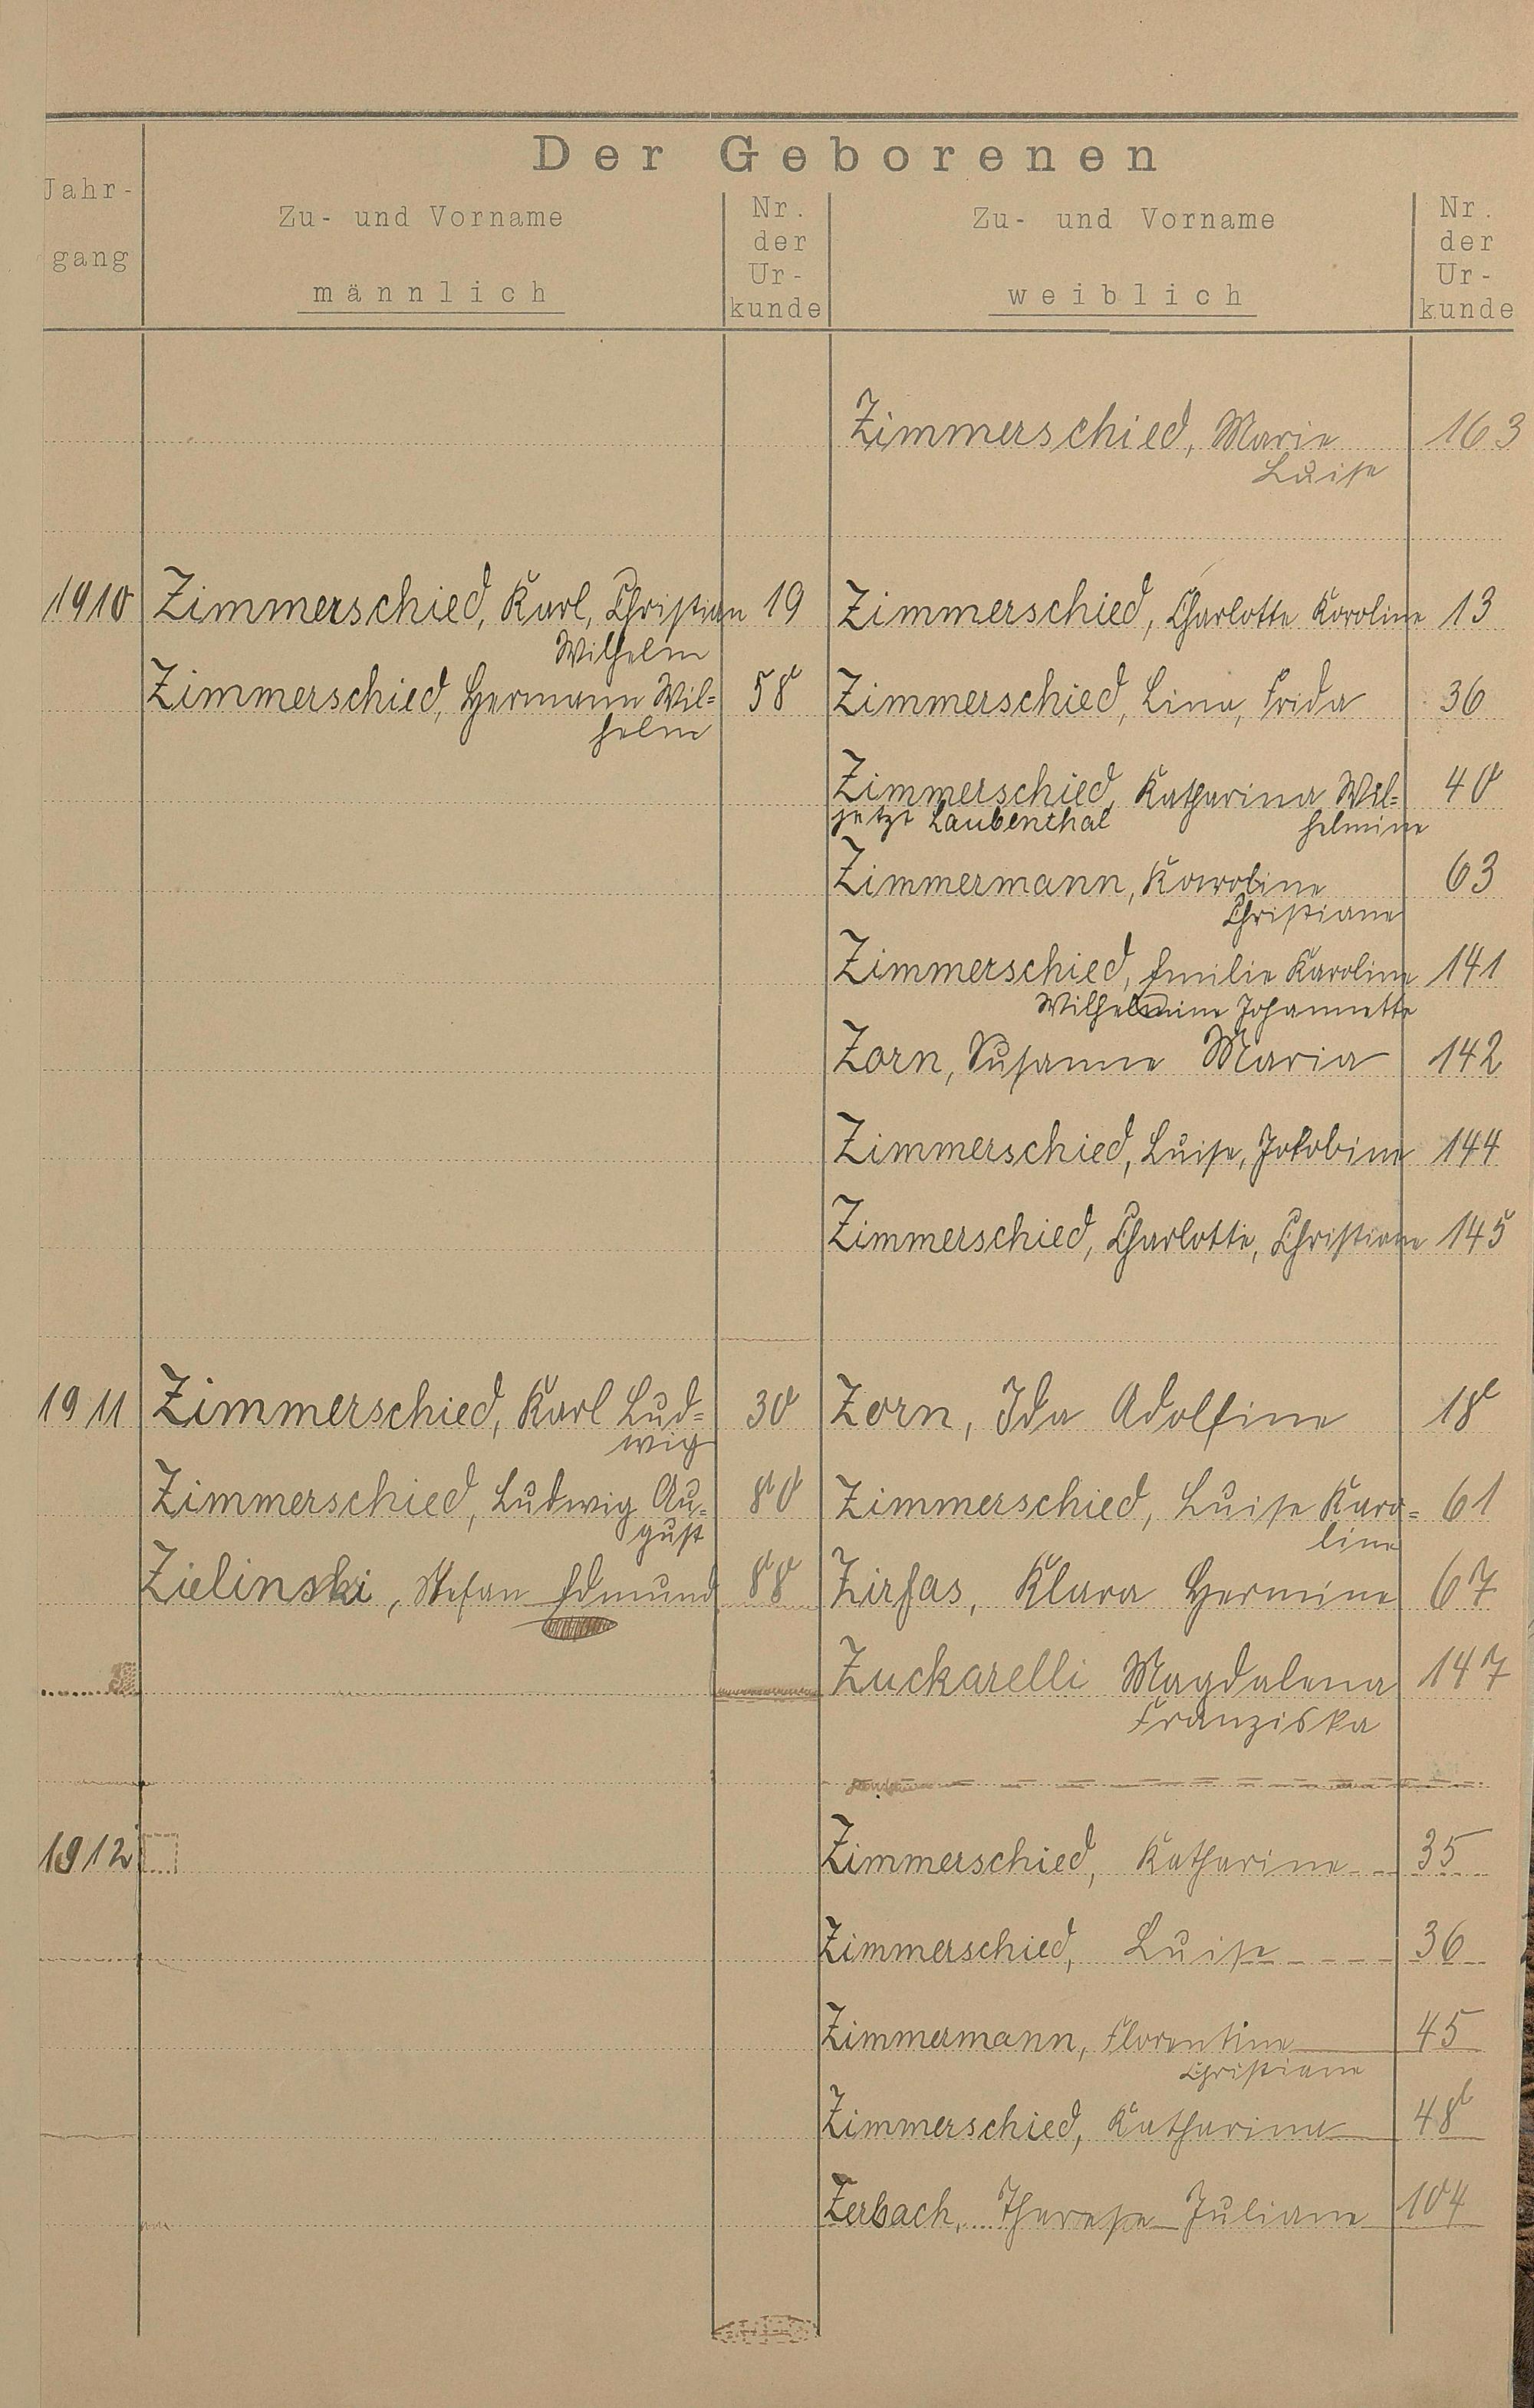 Der Geborenen
Jahr-
gang
Zu- und Vorname
männlich
Nr.
der
Ur-
kunde
Zu- und Vorname
weiblich
Nr.
der
Ur-
kunde
Zimmerschied, Marie 163
Luise
1910 Zimmerschied, Karl, Christian 19 Zimmerschied, Charlotte Karoline 13
Wilhelm
Zimmerschied, Hermann Wil= 58 Zimmerschied, Lina, Frida 36
helm
Zimmerschied, Katharina Wil= 40
jetzt Laubenthal helmine
Zimmermann, Karoline 63
Christiane
Zimmerschied, Emilie Karoline 141
Wilhelmine Johannette
Zorn, Susanne Maria 142
Zimmerschied, Luise, Jakobine 144
Zimmerschied, Charlotte, Christiane 145
1911 Zimmerschied, Karl Lud= 30 Zorn, Ida Adolfine 18
wig
Zimmerschied, Ludwig Au= 80 Zimmerschied, Luise Karo= 61
gust line
Zielinski, Stefan Edmund 88 Zirfas, Klara Hermine 67
Zuckarelli Magdalena 147
Franziska
1912 Zimmerschied, Katharine 35
Zimmerschied, Luise 36
Zimmermann, Florentine 45
Christiane
Zimmerschied, Katharina 48
Zerbach, Therese Juliane 104